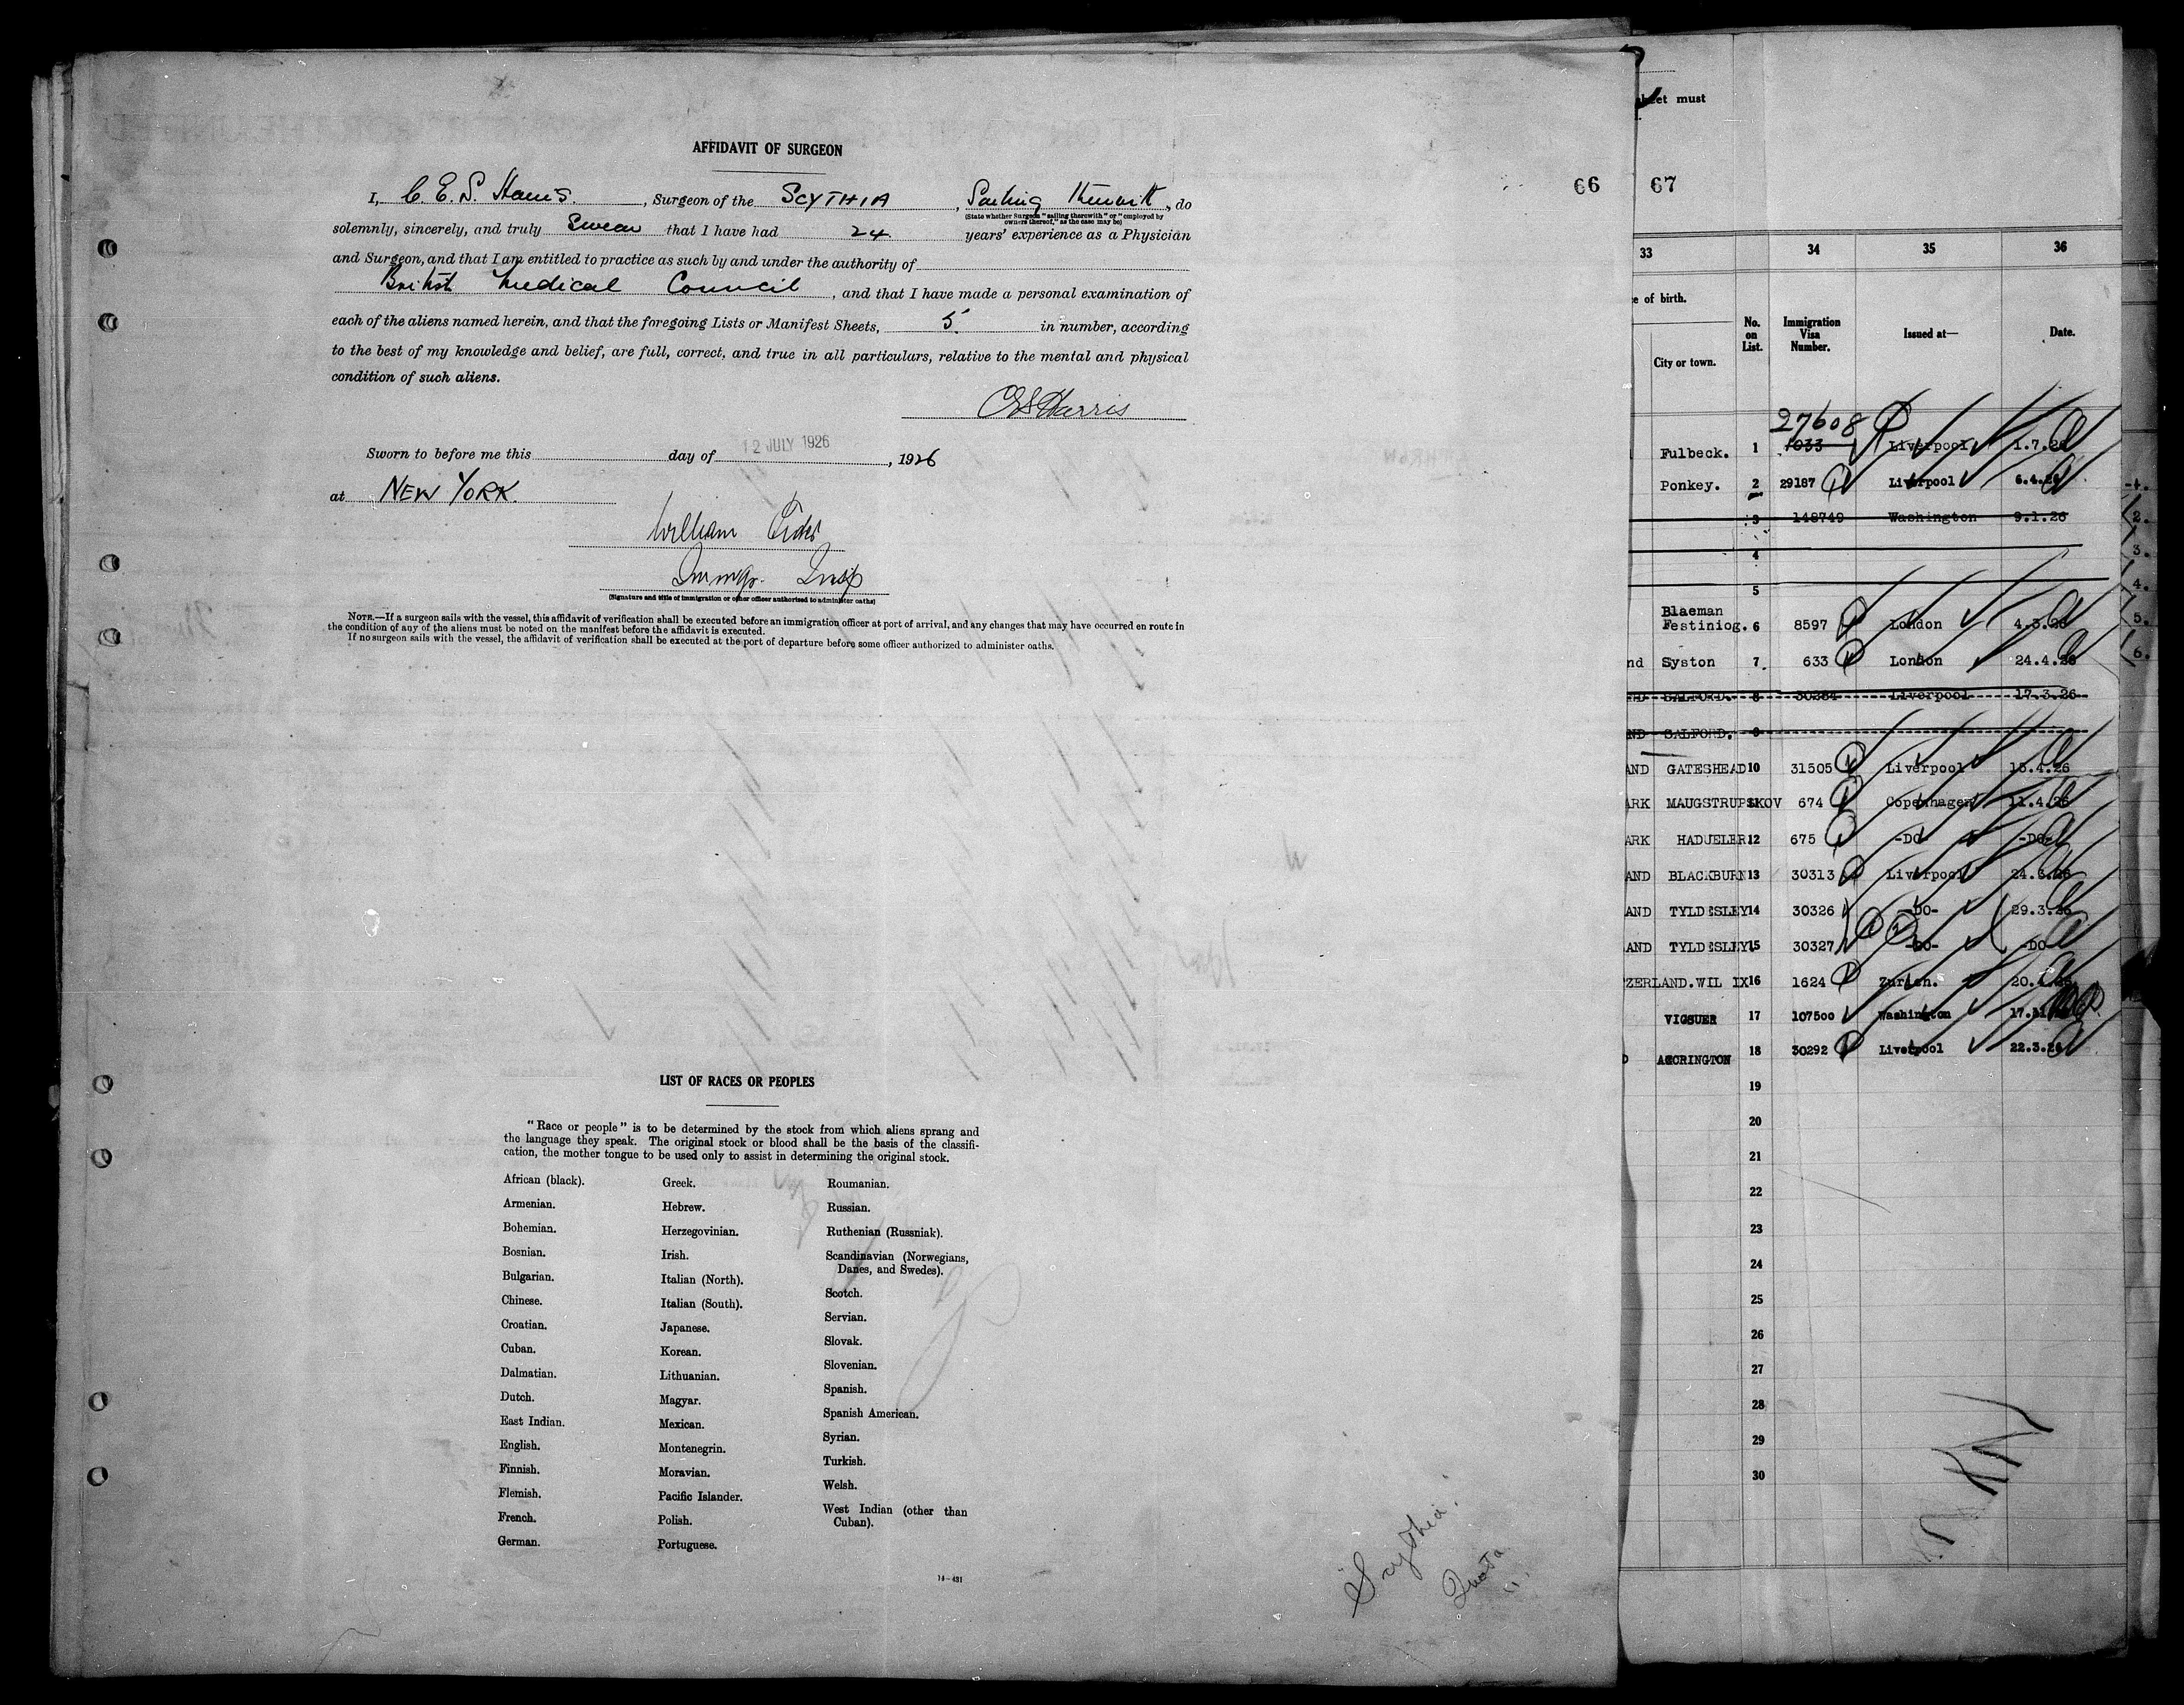 AFFIDAVIT OF SURGEON
I, C. E. S. Harris. , Surgeon of the SCYTHIA , Sailing therewith , do
(State whether Surgeon "sailing therewith" or "employed by
owners thereof," as the case may be)
solemnly, sincerely, and truly Swear that I have had 24 years' experience as a Physician
and Surgeon, and that I am entitled to practice as such by and under the authority of
British Medical Council , and that I have made a personal examination of
each of the aliens named herein, and that the foregoing Lists or Manifest Sheets, 5 in number, according
to the best of my knowledge and belief, are full, correct, and true in all particulars, relative to the mental and physical
condition of such aliens.
CES Harris
Sworn to before me this day of 12 JULY 1926 , 1926
at NEW YORK.
William
Immgr. Insp
(Signature and title of immigration or other officer authorized to administer oaths)
NOTE.—If a surgeon sails with the vessel, this affidavit of verification shall be executed before an immigration officer at port of arrival, and any changes that may have occurred en route in
the condition of any of the aliens must be noted on the manifest before the affidavit is executed.
If no surgeon sails with the vessel, the affidavit of verification shall be executed at the port of departure before some officer authorized to administer oaths.
LIST OF RACES OR PEOPLES
"Race or people" is to be determined by the stock from which aliens sprang and
the language they speak. The original stock or blood shall be the basis of the classifi-
cation, the mother tongue to be used only to assist in determining the original stock.
African (black).
Armenian.
Bohemian.
Bosnian.
Bulgarian.
Chinese.
Croatian.
Cuban.
Dalmatian.
Dutch.
East Indian.
English.
Finnish.
Flemish.
French.
German.
Greek.
Hebrew.
Herzegovinian.
Irish.
Italian (North).
Italian (South).
Japanese.
Korean.
Lithuanian.
Magyar.
Mexican.
Montenegrin.
Moravian.
Pacific Islander.
Polish.
Portuguese.
Roumanian.
Russian.
Ruthenian (Russniak).
Scandinavian (Norwegians,
Danes, and Swedes).
Scotch.
Servian.
Slovak.
Slovenian.
Spanish.
Spanish American.
Syrian.
Turkish.
Welsh.
West Indian (other than
Cuban).
14—431
"Scythia"
Quota
66
67
sheet must
33 34 35 36
e of birth.
City or town.
No. on List.
Immigration Visa Number.
Issued at—
Date.
27608
Fulbeck. 1 1033 Liverpool 1.7.26
Ponkey. 2 29187 Liverpool 6.4.26
3 148749 Washington 9.1.26
4
5
Blaeman
Festiniog. 6 8597 London 4.3.26
nd Syston 7 633 London 24.4.26
ND SALFORD. 8 30284 Liverpool 17.3.26
ND SALFORD. 9
AND GATESHEAD 10 31505 Liverpool 15.4.26
ARK MAUGSTRUPSKOV 674 Copenhagen 11.4.26
ARK HADUELER 12 675 -DO- -DO-
AND BLACKBURN 13 30313 Liverpool 24.3.26
AND TYLDESLEY 14 30326 -DO- 29.3.26
AND TYLDESLEY 15 30327 -DO- -DO-
ZERLAND. WIL IX 16 1624 Zurich. 20.4.26
VIGSUER 17 107500 Washington
ACCRINGTON 18 30292 Liverpool 22.3.26
19
20
21
22
23
24
25
26
27
28
29
30
1.
2.
3.
4.
5.
6.